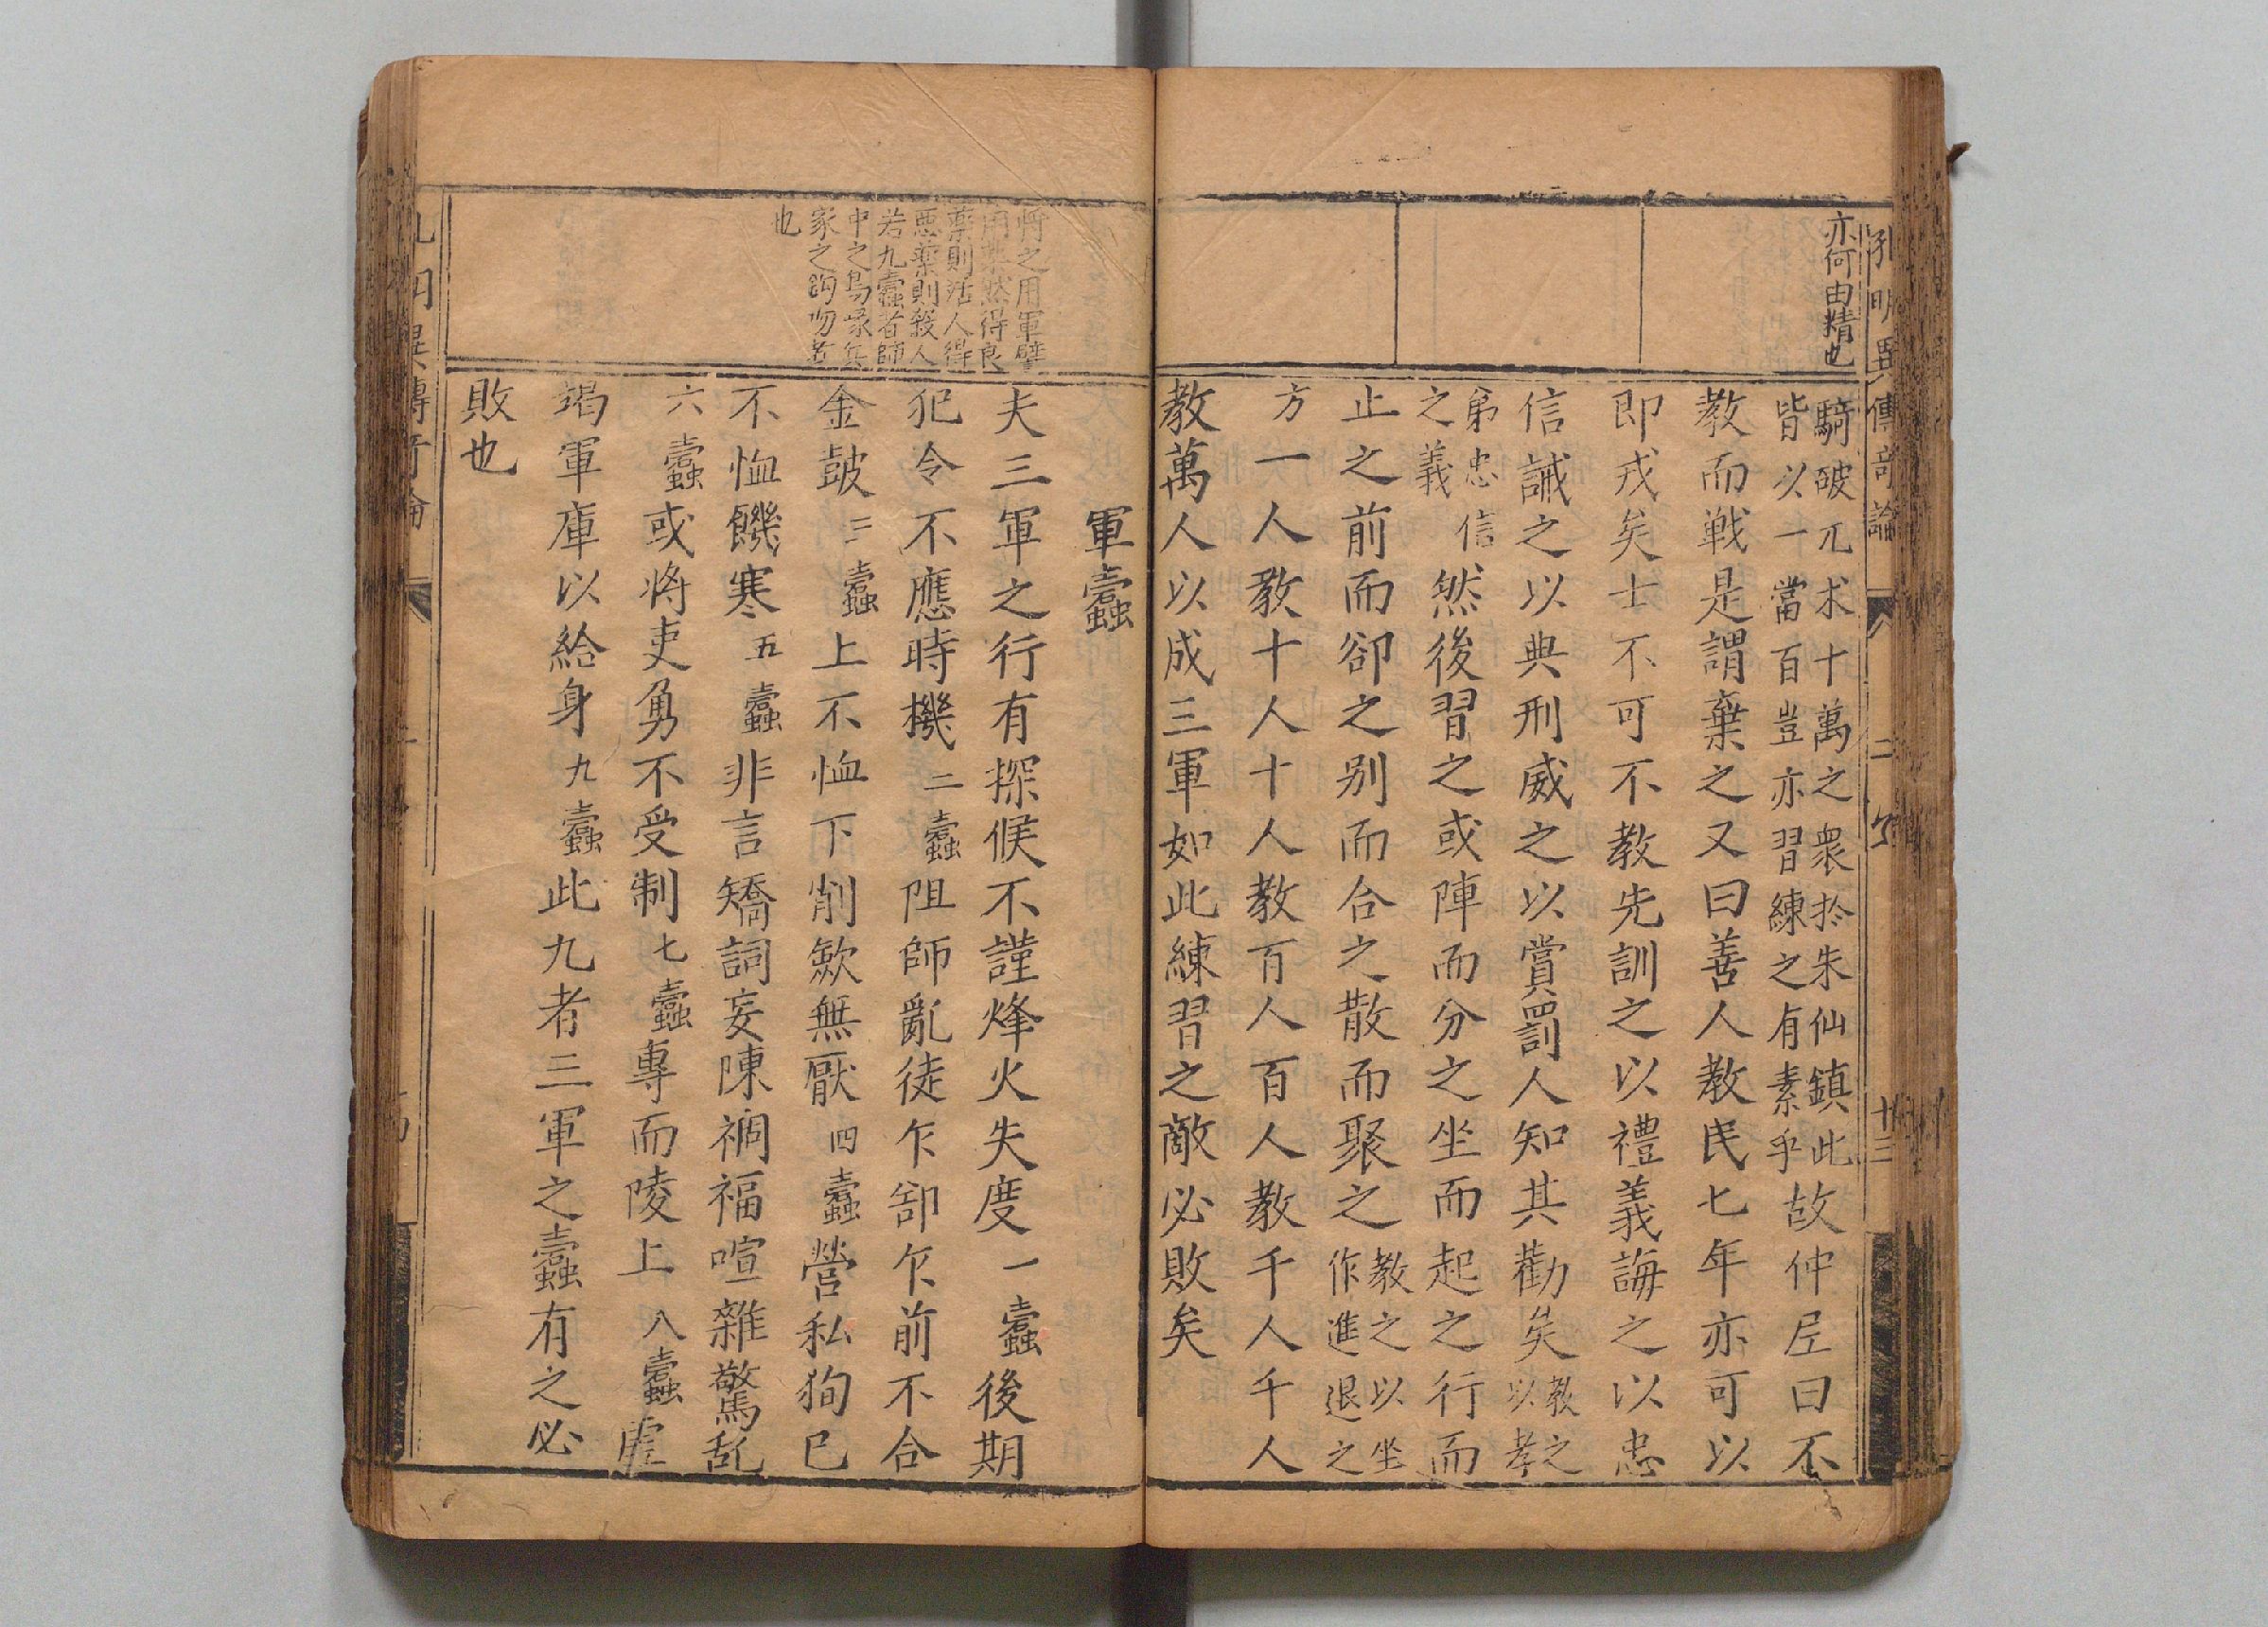 孔明異傳奇論
二 久
十三
亦何由精也
騎破兀术十萬之衆扵朱仙鎮此
皆以一當百豈亦習練之有素乎
故仲㞐曰不
教而戦是謂棄之又曰善人教民七年亦可以
即戎矣士不可不教先訓之以禮義誨之以忠
信誡之以典刑威之以賞罰人知其勸矣
教之以孝
弟忠信
之義
然後習之或陣而分之坐而起之行而
止之前而卻之别而合之散而聚之
教之以坐
作進退之
方
一人教十人十人教百人百人教千人千人
教萬人以成三軍如此練習之敵必敗矣
將之用軍譬
用藥然得良
藥則活人得
惡藥則殺人
若九蠹者師
中之鳥喙兵
家之鈎吻者
也
軍蠹
夫三軍之行有探候不謹烽火失度一蠹後期
犯令不應時機二蠹阻師亂徒乍乍卻乍前不合
金皷三蠹上不恤下削歛無厭四蠹營私狥已
不恤饑寒五蠹非言矯詞妄陳禍福喧雜驚乱
六蠹或將吏勇不受制七蠹專而陵上八蠹虚
竭軍庫以給身九蠹此九者三軍之蠹有之必
敗也